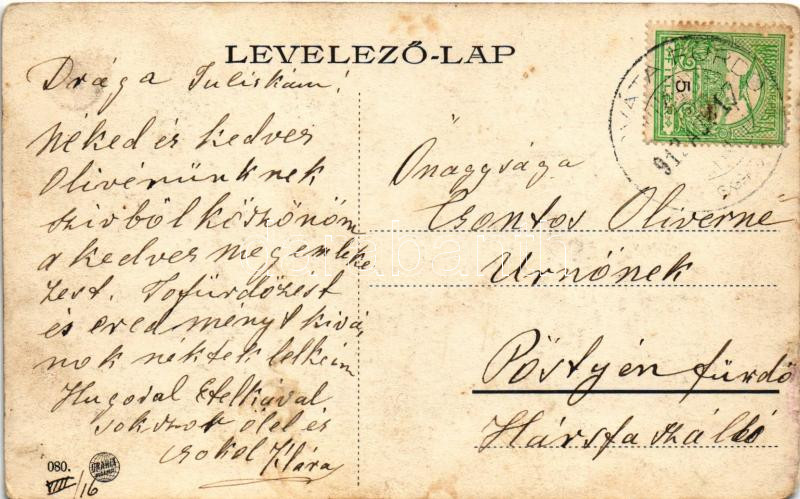 LEVELEZŐ-LAP
Drága Juliskám!
Néked és kedves
Olivérünknek
szivből köszönöm
a kedves megemléke
zést. Jó fürdőzést
és eredményt kivá
nok néktek lelkeim
Hugoddal Etelkával
sokszor ölel és
csokol Klára
080.
VIII/16
Önagysága
Csontos Olivérné
Urnőnek
Pöstyén fürdő
Hársfa szálló
912 AUG 17
5